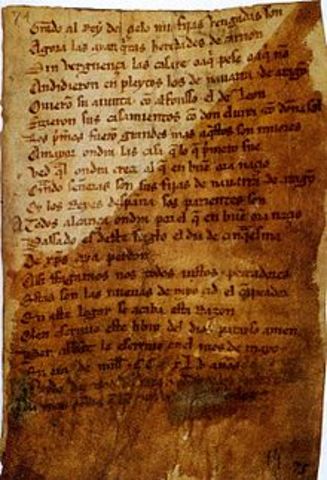 Grado al Rey del çielo mis fijas vengadas son
Agora las ayan quitas heredades de carrion
Sin verguença las casare o aq pese o aq nō
Andidieron en pleytos los de nauarra & de aragō
Ouierō su aiunta cō alfonsso el de leon
Fizierō sus casamientos cō don eluira & cō doña sol
Los pmos fuerō grandes mas aqstos son miiores
A mayor ondra las casa q lo q pmero fue
Ved ql ondra creçe al q en buē ora naçio
Qndo señoras son sus fijas de nauarra & de aragō
Oy los Reyes despaña sos parientes son
A todos alcança ondra por el q en buē ora naçio
Passado es deste sieglo el dia de cinqesma
De xps aya perdon
Assi ffagamos nos todos iustos & peccadores
Estas son las nueuas de myo çid el canpeador
En este logar se acaba esta Razon
Qien escriuio este libro del dios parayso amen
Per abbat le escriuio en el mes de mayo
En era de mill & CC xLv años